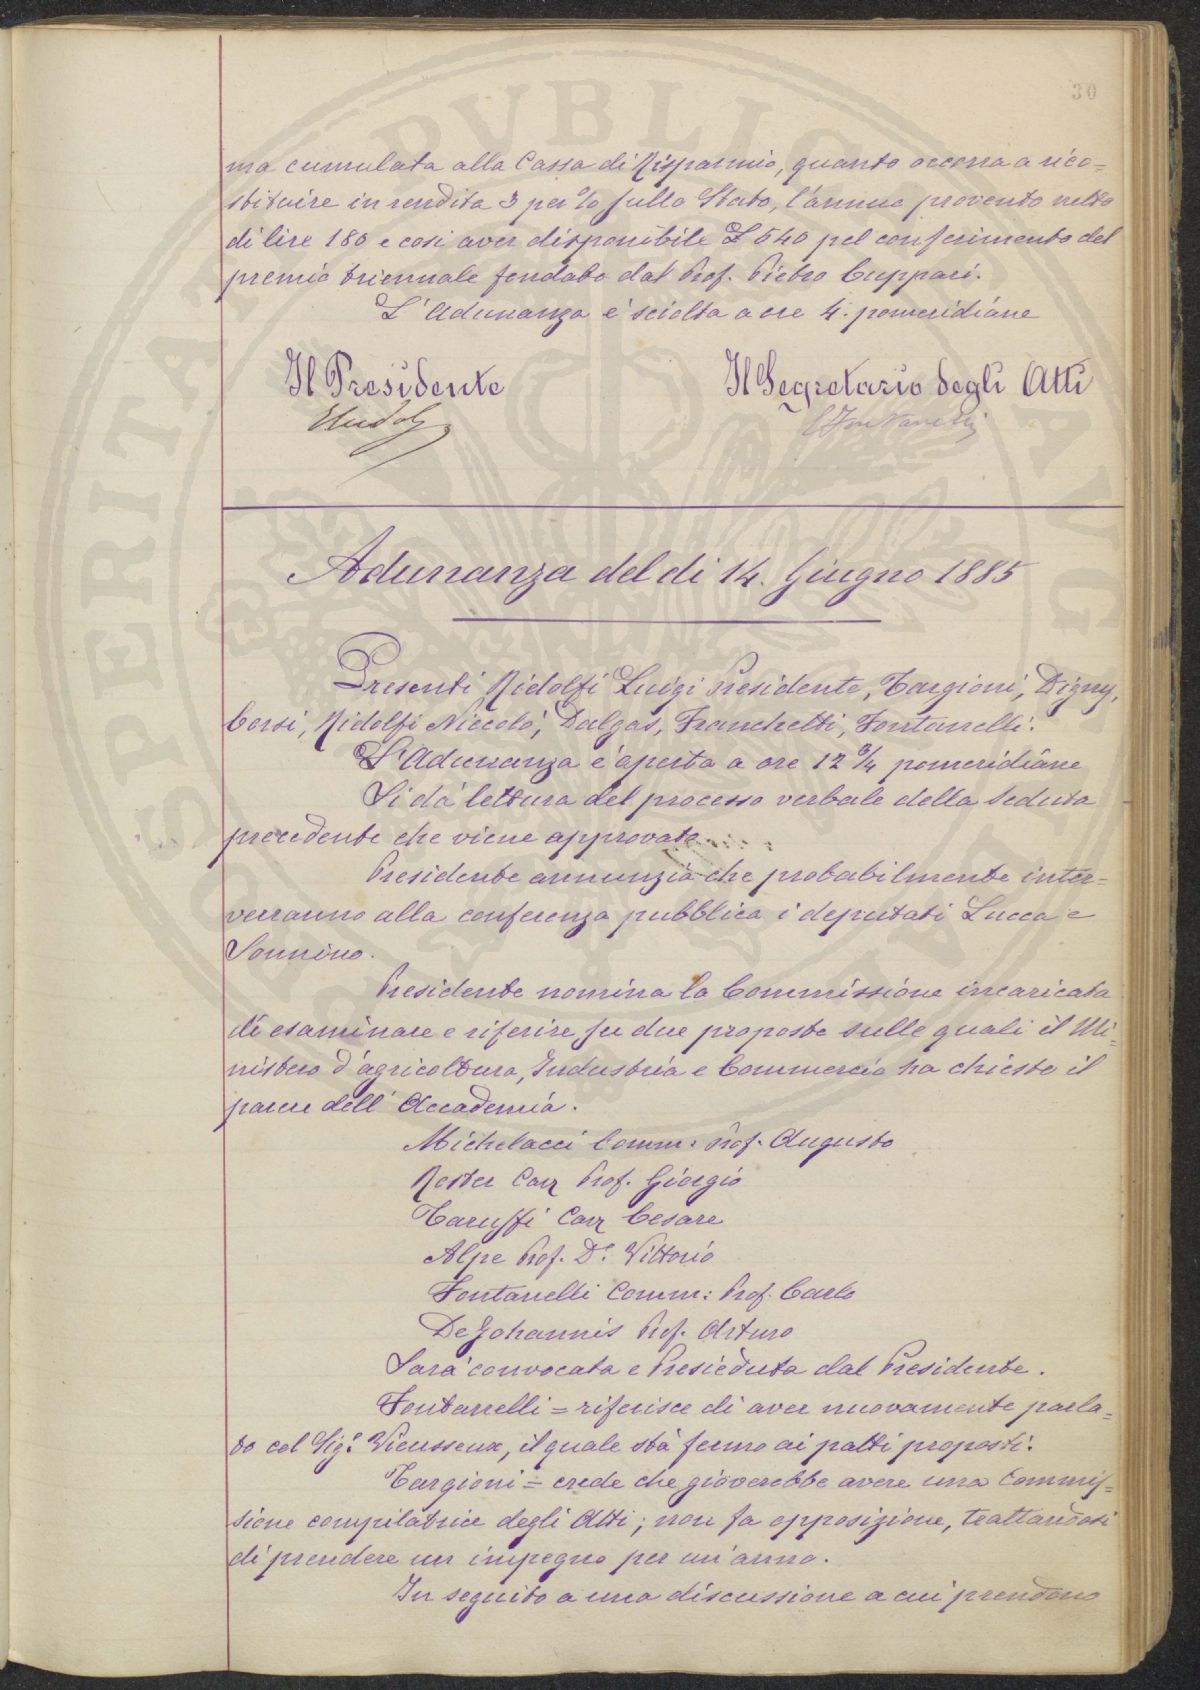 30
ma cumulata alla Cassa di Risparmio, quanto occorra a rico=
stituire in rendita 3 per % sullo Stato, l'annuo provento netto
di lire 180 e così aver disponibile £ 540 pel conferimento del
premio triennale fondato dal Prof. Pietro Cuppari.
L'Adunanza è sciolta a ore 4. pomeridiane
Il Presidente Il Segretario degli Atti
C Fontanelli
Adunanza del dì 14. Giugno 1885
Presenti, Ridolfi Luigi Presidente, Targioni, Digny,
Corsi, Ridolfi Niccolò, Dalgas, Franchetti, Fontanelli.
L'Adunanza è aperta a ore 12 3/4 pomeridiane
Si dà lettura del processo verbale della Seduta
precedente che viene approvato
Presidente annunzia che probabilmente inter=
verranno alla conferenza pubblica i deputati Lucca e
Sonnino.
Presidente nomina la Commissione incaricata
di esaminare e riferire su due proposte sulle quali il Mi=
nistero d'agricoltura, Industria e Commercio ha chiesto il
parere dell'Accademia.
Michelacci Comm: Prof. Augusto
Roster Cav Prof. Giorgio
Taruffi Cav Cesare
Alpe Prof. Dr. Vittorio
Fontanelli Comm: Prof. Carlo
De Johannis Prof. Arturo
Sarà convocata e Presieduta dal Presidente.
Fontanelli = riferisce di aver nuovamente parla=
to col Sigr. Vieusseux, il quale stà fermo ai patti proposti.
Targioni = crede che gioverebbe avere una Commis=
sione compilatrice degli Atti; non fa opposizione, trattandosi
di prendere un impegno per un'anno.
In seguito a una discussione a cui prendono
SPERITAT PVBLIC AVG